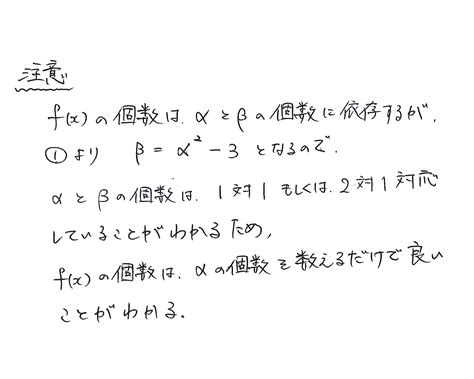 注意
f(x)の個数は、αとβの個数に依存するが、
①より β = α² − 3 となるので、
αとβの個数は、1対1もしくは、2対1対応
していることがわかるため、
f(x)の個数は、αの個数を数えるだけで良い
ことがわかる.